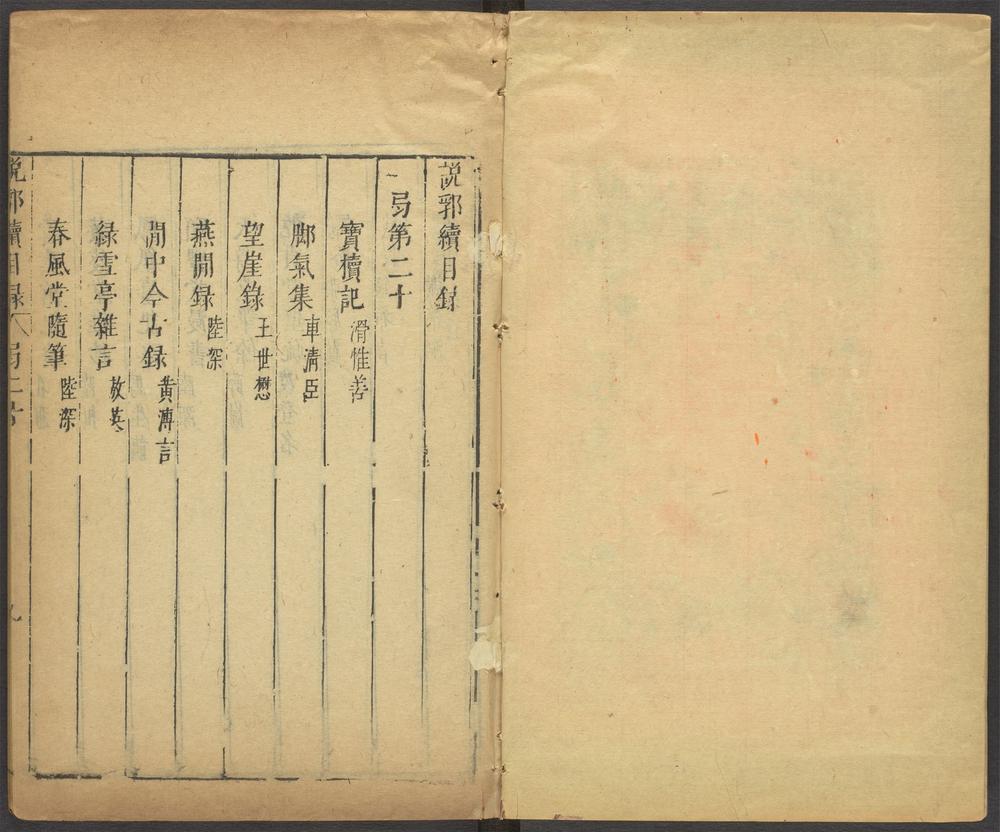 說郛續目錄
弓第二十
寶櫝記 滑惟善
脚氣集 車清臣
望崖錄 王世懋
燕閒録 陸深
閒中今古録 黃溥言
緑雪亭雜言 敖英
春風堂隨筆 陸深
說郛續目録 弓二十